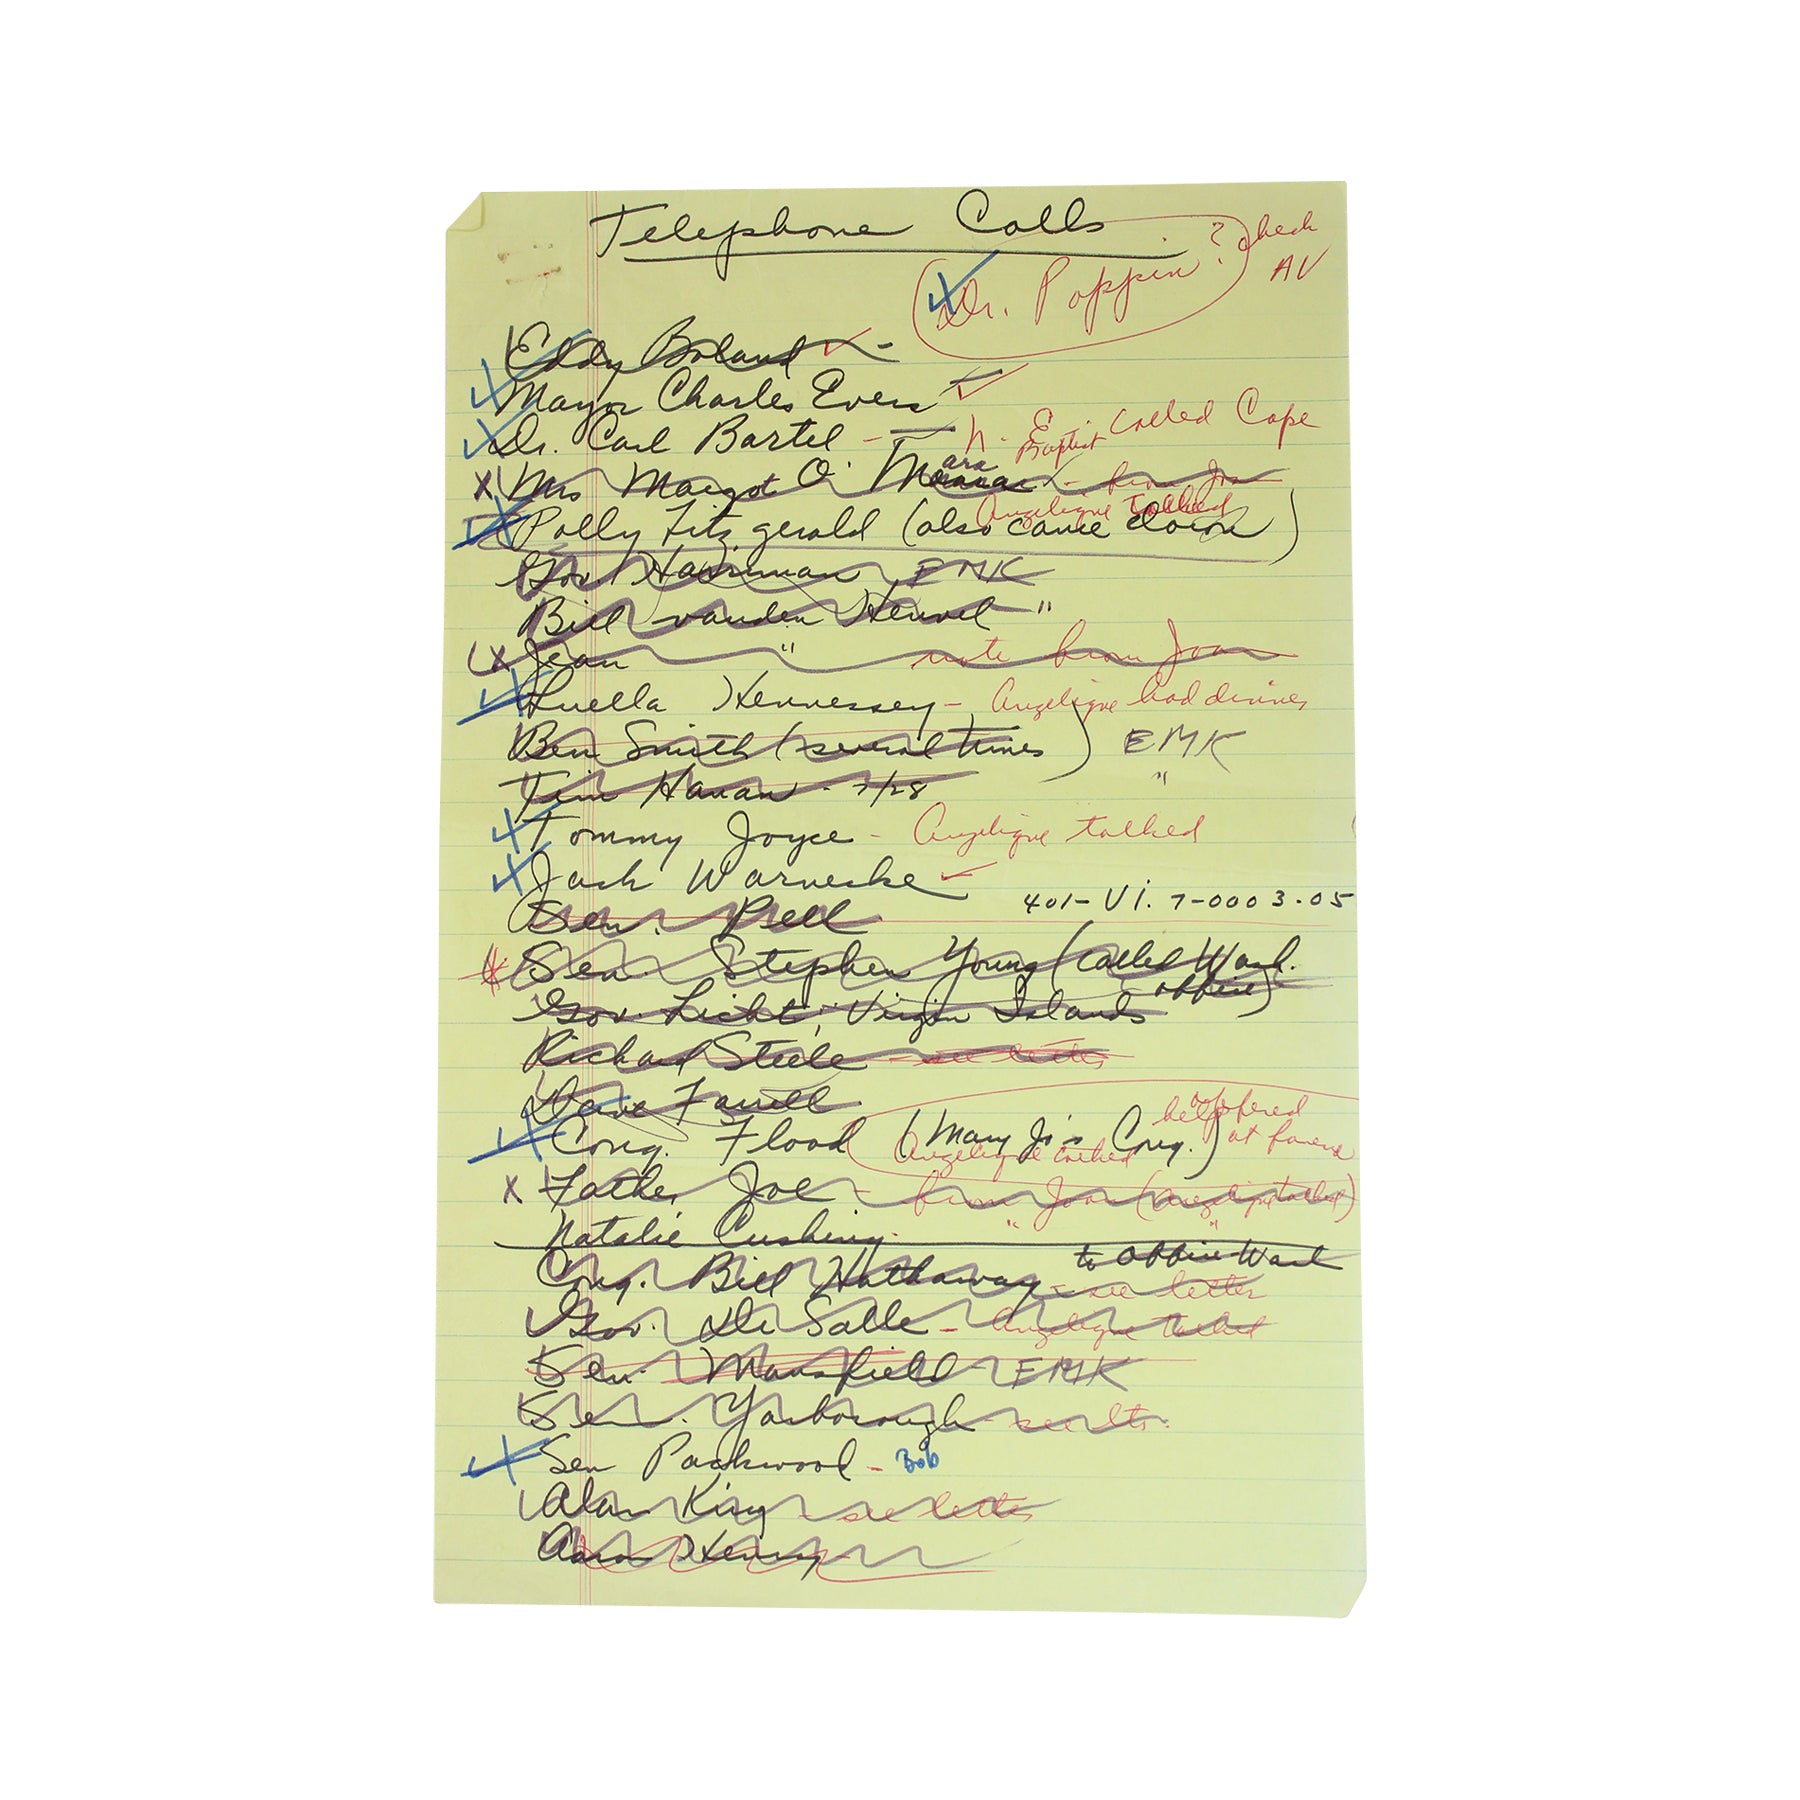 Telephone Calls
? check
AV
Dr. Poppin?
Eddy Boland -
Mayor Charles Evers -
Dr. Carl Bartel - N. E. Baptist called Cape
X Mrs Margot O' Mara - from Joan
Angelique talked
Polly Fitzgerald (also came down)
Gov. Harriman EMK
Bill vanden Heuvel "
X Jean " note from Joan
Luella Hennessey - Angelique had dinner
Ben Smith (several times) EMK
Tim Hanan - 7/28 "
Tommy Joyce - Angelique talked
Jack Warnecke -
401- VI. 7-0003.05
Sen. Pell
Sen. Stephen Young (called Wash. office)
Gov. Licht, Virgin Islands
Richard Steele - see letter
Dave Farrell
Cong. Flood (Mary Jo's Cong.) offered help at funeral
Angelique talked
X Father Joe - from Joan (Angelique talked)
Natalie Cushing - " "
to office Wash
Cong. Bill Hathaway - see letter
Gov. Di Salle - Angelique talked
Sen. Mansfield - EMK
Sen. Yarborough - see ltr.
Sen Packwood - Bob
Alan King - see letter
Aaron Henry -